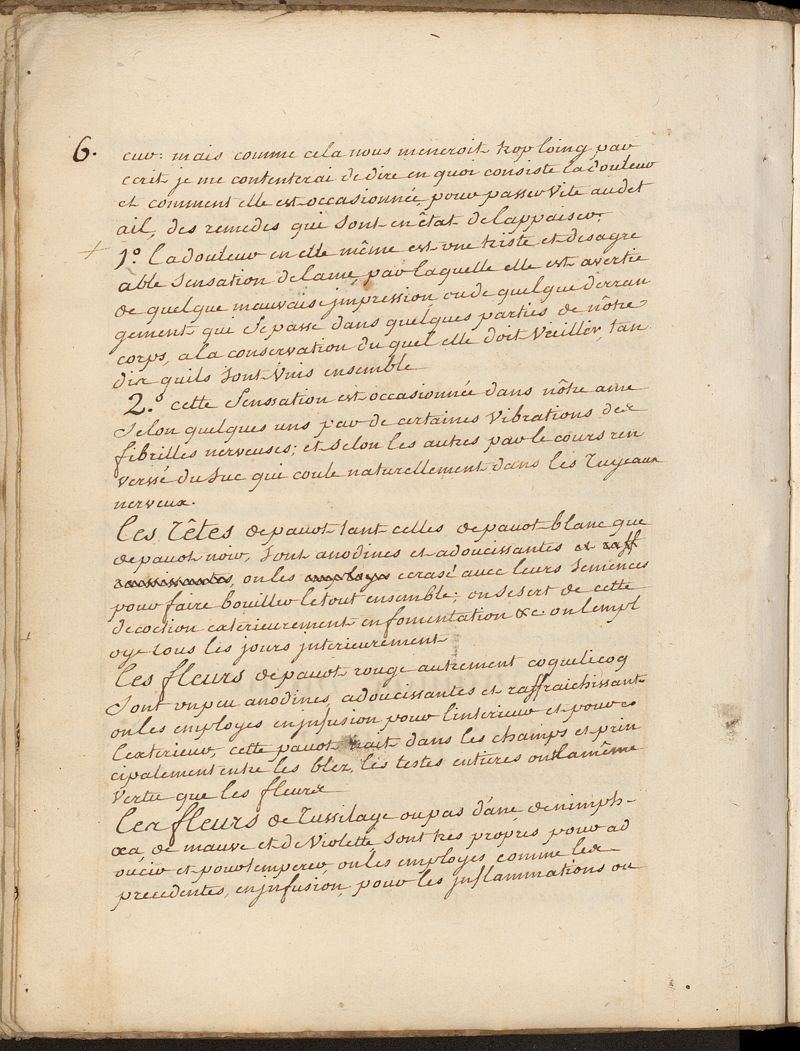 6. cur: mais comme cela nous meneroit trop loing par
ecrit je me contenterai de dire en quoi consiste la douleur
et comment elle est occasionnée pour passer vite au det
ail, des remedes qui sont en êtat de lappaiser.
1.º la douleur en elle même est vne triste et desagre
able sensation de lame, par laquelle elle est avertie
de quelque mauvaise jmpression, ou de quelque derran
gement qui se passe dans quelques parties de nôtre
corps, a la conservation du quel elle doit veiller, tan
dis quils sont vnis ensemble
2.º cette senssation est occasionnée dans nôtre ame
selon quelques uns par de certaines vibrations des
fibrilles nerveuses; et selon les autres par le cours ren
versé du suc qui coule naturellement dans les tuyeaux
nerveux.
les Têtes de pavot tant celles de pavot blanc que
de pavot noir, sont anodines et adoucissantes et raff
, on les employe ecrasé avec leurs semences
pour faire boüiller le tout ensemble; on se sert de cette
decoction exterieurement en fomentation &c. on l'empl
oye tous les jours jnterieurement
les fleurs de pavot rouge autrement coquelicoq
sont vn peu anodines, adoucissantes et raffraichissant
on les employes en jnfusion pour l'interieur et pour
l'exterieur, cette pavot nait dans les champs et prin
cipalement entre les blez, les testes entieres ont la même
vertu que les fleurs
les fleurs de Tussilage ou pas d'ane de nimph-
œa de mauve et de violette sont tres propres pour ad
oucir et pour temperer, on les employes, comme les
precedentes, en jnfusion, pour les jnflammations ou